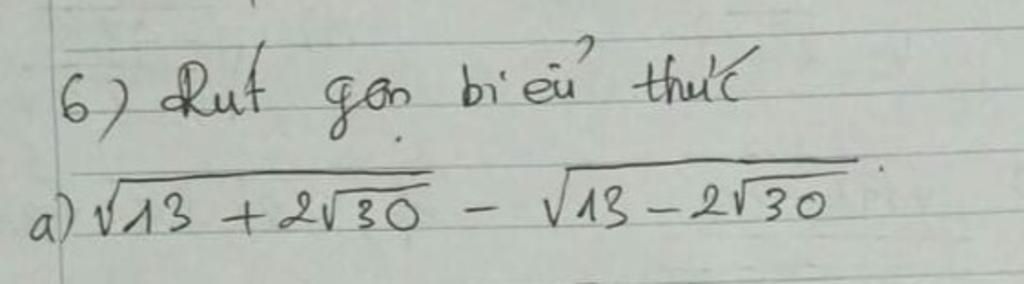 6) Rút gọn biểu thức
a) √(13 + 2√30) - √(13 - 2√30)